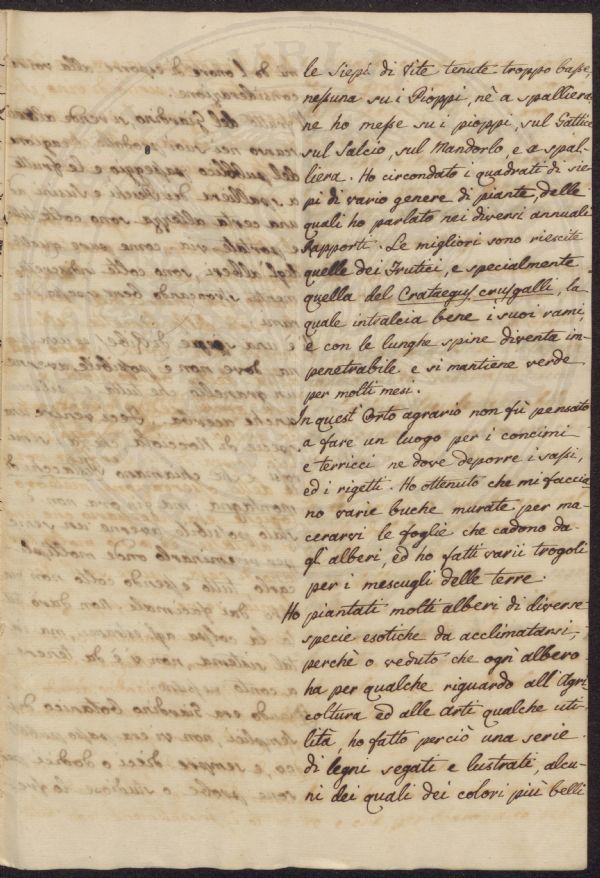 le Siepi di Vite tenute troppo basse,
nessuna su i Pioppi, nè a spalliera,
ne ho messe su i pioppi, sul Gattice
sul Salcio, sul Mandorlo, e a spal-
liera. Ho circondato i quadrati di sie-
pi di vario genere di piante, delle
quali ho parlato nei diversi annuali
Rapporti. Le migliori sono riescite
quelle dei Frutici, e specialmente
quella del Crataegus crusgalli, la
quale intralcia bene i suoi rami,
e con le lunghe spine diventa im-
penetrabile e si mantiene verde
per molti mesi.
In quest'Orto agrario non fù pensato
a fare un luogo per i concimi
e terricci ne dove deporre i sassi,
ed i rigetti. Ho ottenuto che mi faccia
no varie buche murate per ma-
cerarvi le foglie che cadono da
gl'alberi, ed ho fatti varii trogoli
per i mescugli delle terre.
Ho piantati molti alberi di diverse
specie esotiche da acclimatarsi,
perchè o veduto che ogni albero
ha per qualche riguardo all'Agri-
coltura ed alle Arti qualche uti-
lità, ho fatto perciò una serie
di legni segati e lustrati, alcu-
ni dei quali dei colori più belli